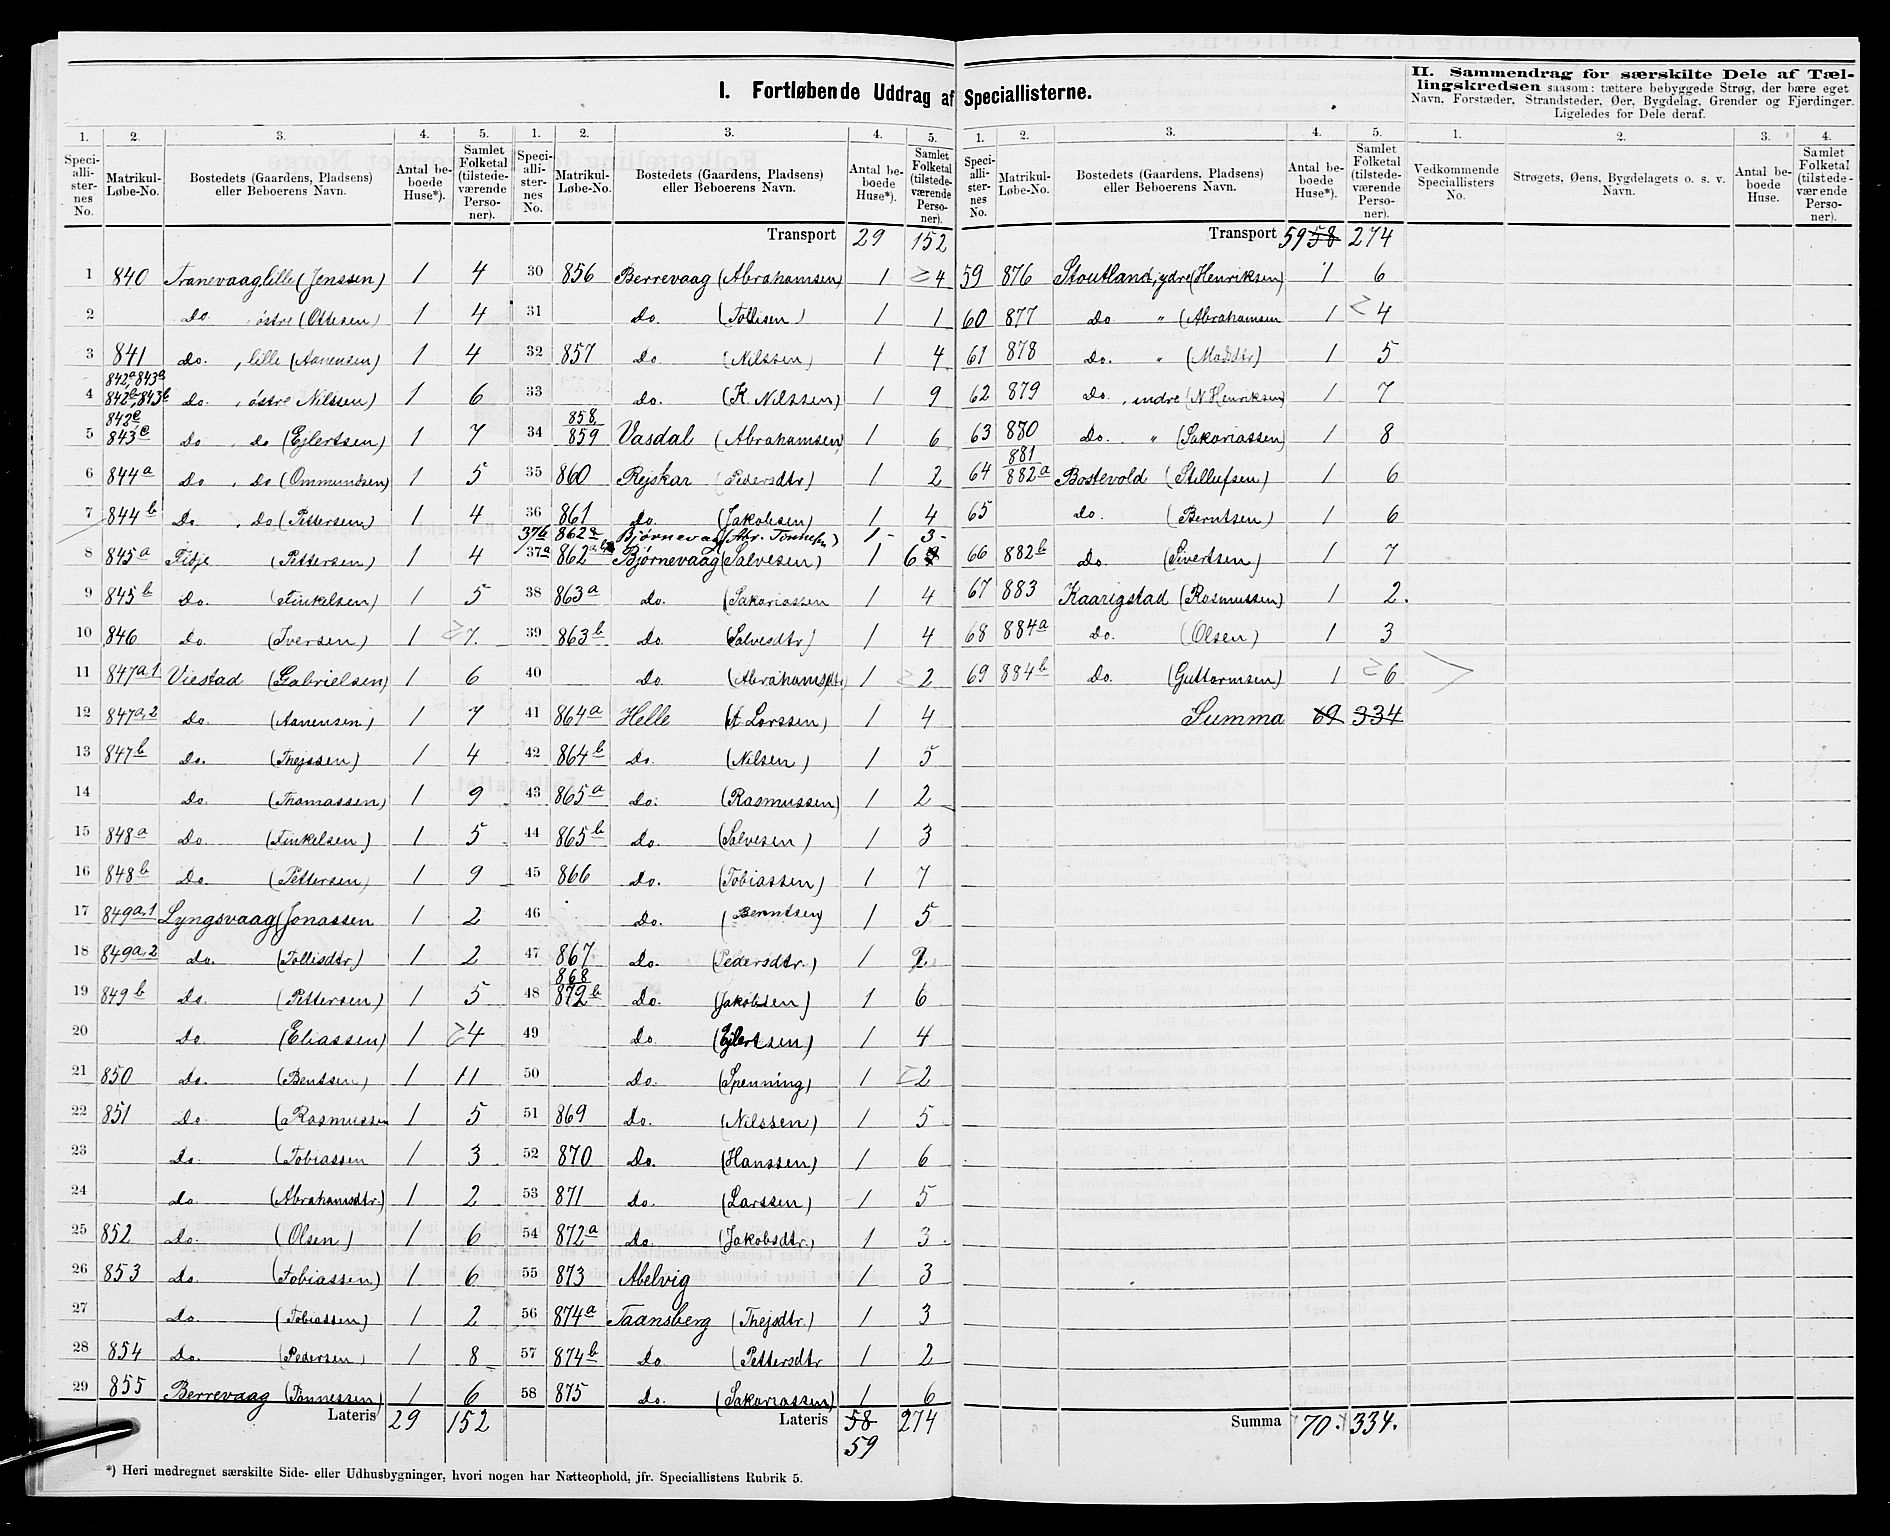 I. Fortløbende Uddrag af Speciallisterne.
II. Sammendrag for særskilte Dele af Tællingskredsen saasom: tættere bebyggede Strøg, der bære eget
Navn, Forstæder, Strandsteder, Øer, Bygdelag, Grender og Fjerdinger.
Ligeledes for Dele deraf.
1. 2. 3. 4. 5.
Speciallisternes No. Matrikul-Løbe-No. Bostedets (Gaardens, Pladsens) eller Beboerens Navn. Antal beboede Huse*). Samlet Folketal (tilstedeværende Personer).
1 840 Tranevaag lille (Jenssen) 1 4
2 do. østre (Ottesen) 1 4
3 841 do. , lille (Aanensen) 1 4
842a, 843a
4 842b, 843b do. , østre Nilssen) 1 6
842c
5 843c do , do (Ejlertsen) 1 7
6 844a do , do (Ommundsen) 1 5
7 844b do. , do (Pettersen) 1 4
8 845a Fidje (Pettersen) 1 4
9 845b do. (Finkelsen) 1 5
10 846 do. (Iversen) 1 7.
11 847a,1 Viestad (Gabrielsen) 1 6
12 847a,2 do. (Aanensen) 1 7
13 847b do. (Thejssen) 1 4
14 do. (Thomassen) 1 9
15 848a do. (Finkelsen) 1 5
16 848b do. (Pettersen) 1 9
17 849a,1 Lyngsvaag (Jonassen 1 2
18 849a,2 do. (Tollisdtr) 1 2
19 849b do. (Pettersen) 1 5
20 do (Eliassen) 1 4
21 850 do. (Bentsen) 1 11
22 851 do. (Rasmussen 1 5
23 do. (Tobiassen 1 3
24 do. (Abrahamsdtr.) 1 2
25 852 do. (Olsen) 1 6
26 853 do. (Tobiassen) 1 6
27 do. (Tobiassen) 1 2
28 854 do. (Pedersen) 1 8
29 855 Berrevaag (Tønnessen) 1 6
Lateris 29 152
1. 2. 3. 4. 5.
Speciallisternes No. Matrikul-Løbe-No. Bostedets (Gaardens, Pladsens) eller Beboerens Navn. Antal beboede Huse*). Samlet Folketal (tilstedeværende Personer).
Transport 29 152
30 856 Berrevaag (Abrahamsen) 1 4
31 do. (Tollisen) 1 1
32 857 do (Nilssen) 1 4
33 do. (K. Nilssen) 1 9
858.
34 859 Vasdal (Abrahamsen) 1 6
35 860 Rejskar (Pedersdtr) 1 2
36 861 do. (Jakobsen) 1 4
37b 862a Bjørnevaag (Abr. Tønnesen) 1- 3-
37a 862a Bjørnevaag (Salvesen) 1 6
38 863a do. (Sakariassen 1 4
39 863b do. (Salvesdtr) 1 4
40 do. (Abrahamsdtr) 1 2
41 864a Helle (A Larssen) 1 4
42 864b do. (Nilsen) 1 5
43 865a do. (Rasmussen) 1 2
44 865b do. (Salvesen) 1 3
45 866 do. (Tobiassen) 1 7
46 do. (Berntsen) 1 5
47 867 do. (Pedersdtr.) 1 2
868
48 872b do. (Jakobsen) 1 6
49 do. (Ejlertsen) 1 4
50 do. (Spenning) 1 2
51 869 do. (Nilssen) 1 5
52 870 do. (Hanssen) 1 6
53 871 do. (Larssen) 1 5
54 872a do. (Jakobsdtr.) 1 3
55 873 Abelvig 1 3
56 874a Taansberg (Thejsdtr.) 1 3
57 874b do (Pettersdtr 1 2
58 875 do. (Sakariassen) 1 6
Lateris 58 274
59
1. 2. 3. 4. 5.
Speciallisternes No. Matrikul-Løbe-No. Bostedets (Gaardens, Pladsens) eller Beboerens Navn. Antal beboede Huse*). Samlet Folketal (tilstedeværende Personer).
Transport 59 58 274
59 876 Stoutland, ydre (Henriksen) 1 6
60 877 do " (Abrahamsen 1 4
61 878 do. " (Madsdtr) 1 5
62 879 do. , indre (N Henriksen) 1 7
63 880 do. " (Sakariassen) 1 8
881
64 882a Bostevold (Stillufsen) 1 6
65 do. (Berntsen) 1 6
66 882b do. (Sivertsen) 1 7
67 883 Kaarigstad (Rasmussen) 1 2.
68 884a do. (Olsen) 1 3
69 884b do. (Guttormsen) 1 6
Summa 69 334
Summa 70. 334.
1. 2. 3. 4.
Vedkommende Speciallisters No. Strøgets, Øens, Bygdelagets o. s. v. Navn. Antal beboede Huse. Samlet Folketal (tilstedeværende Personer).
*) Heri medregnet særskilte Side- eller Udhusbygninger, hvori nogen har Natteophold, jfr. Speciallistens Rubrik 5.